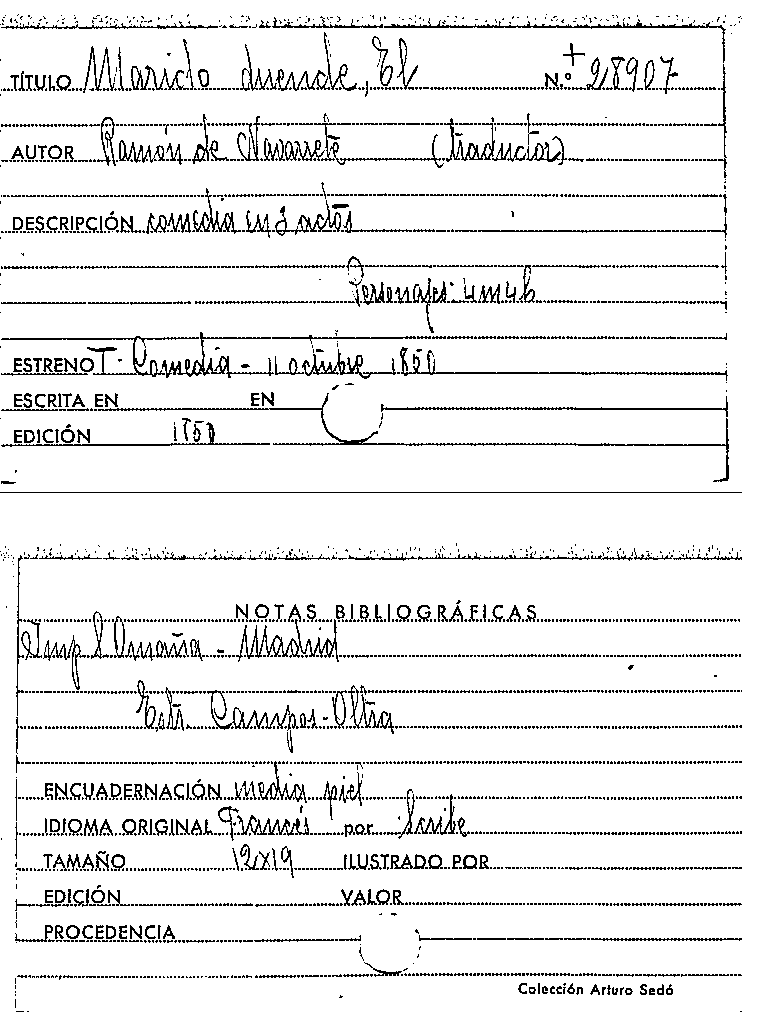 TÍTULO Marido duende, El N.º + 28907
AUTOR Ramón de Navarrete (traductor)
DESCRIPCIÓN comedia en 3 actos
Personajes: 4m4h
ESTRENO T. Comedia - 11 octubre 1850
ESCRITA EN EN
EDICIÓN 1850
NOTAS BIBLIOGRÁFICAS
Imp S Omaña - Madrid
Estr. Campos-Oltra
ENCUADERNACIÓN media piel
IDIOMA ORIGINAL Francés por Scribe
TAMAÑO 12x19 ILUSTRADO POR
EDICIÓN VALOR
PROCEDENCIA
Colección Arturo Sedó